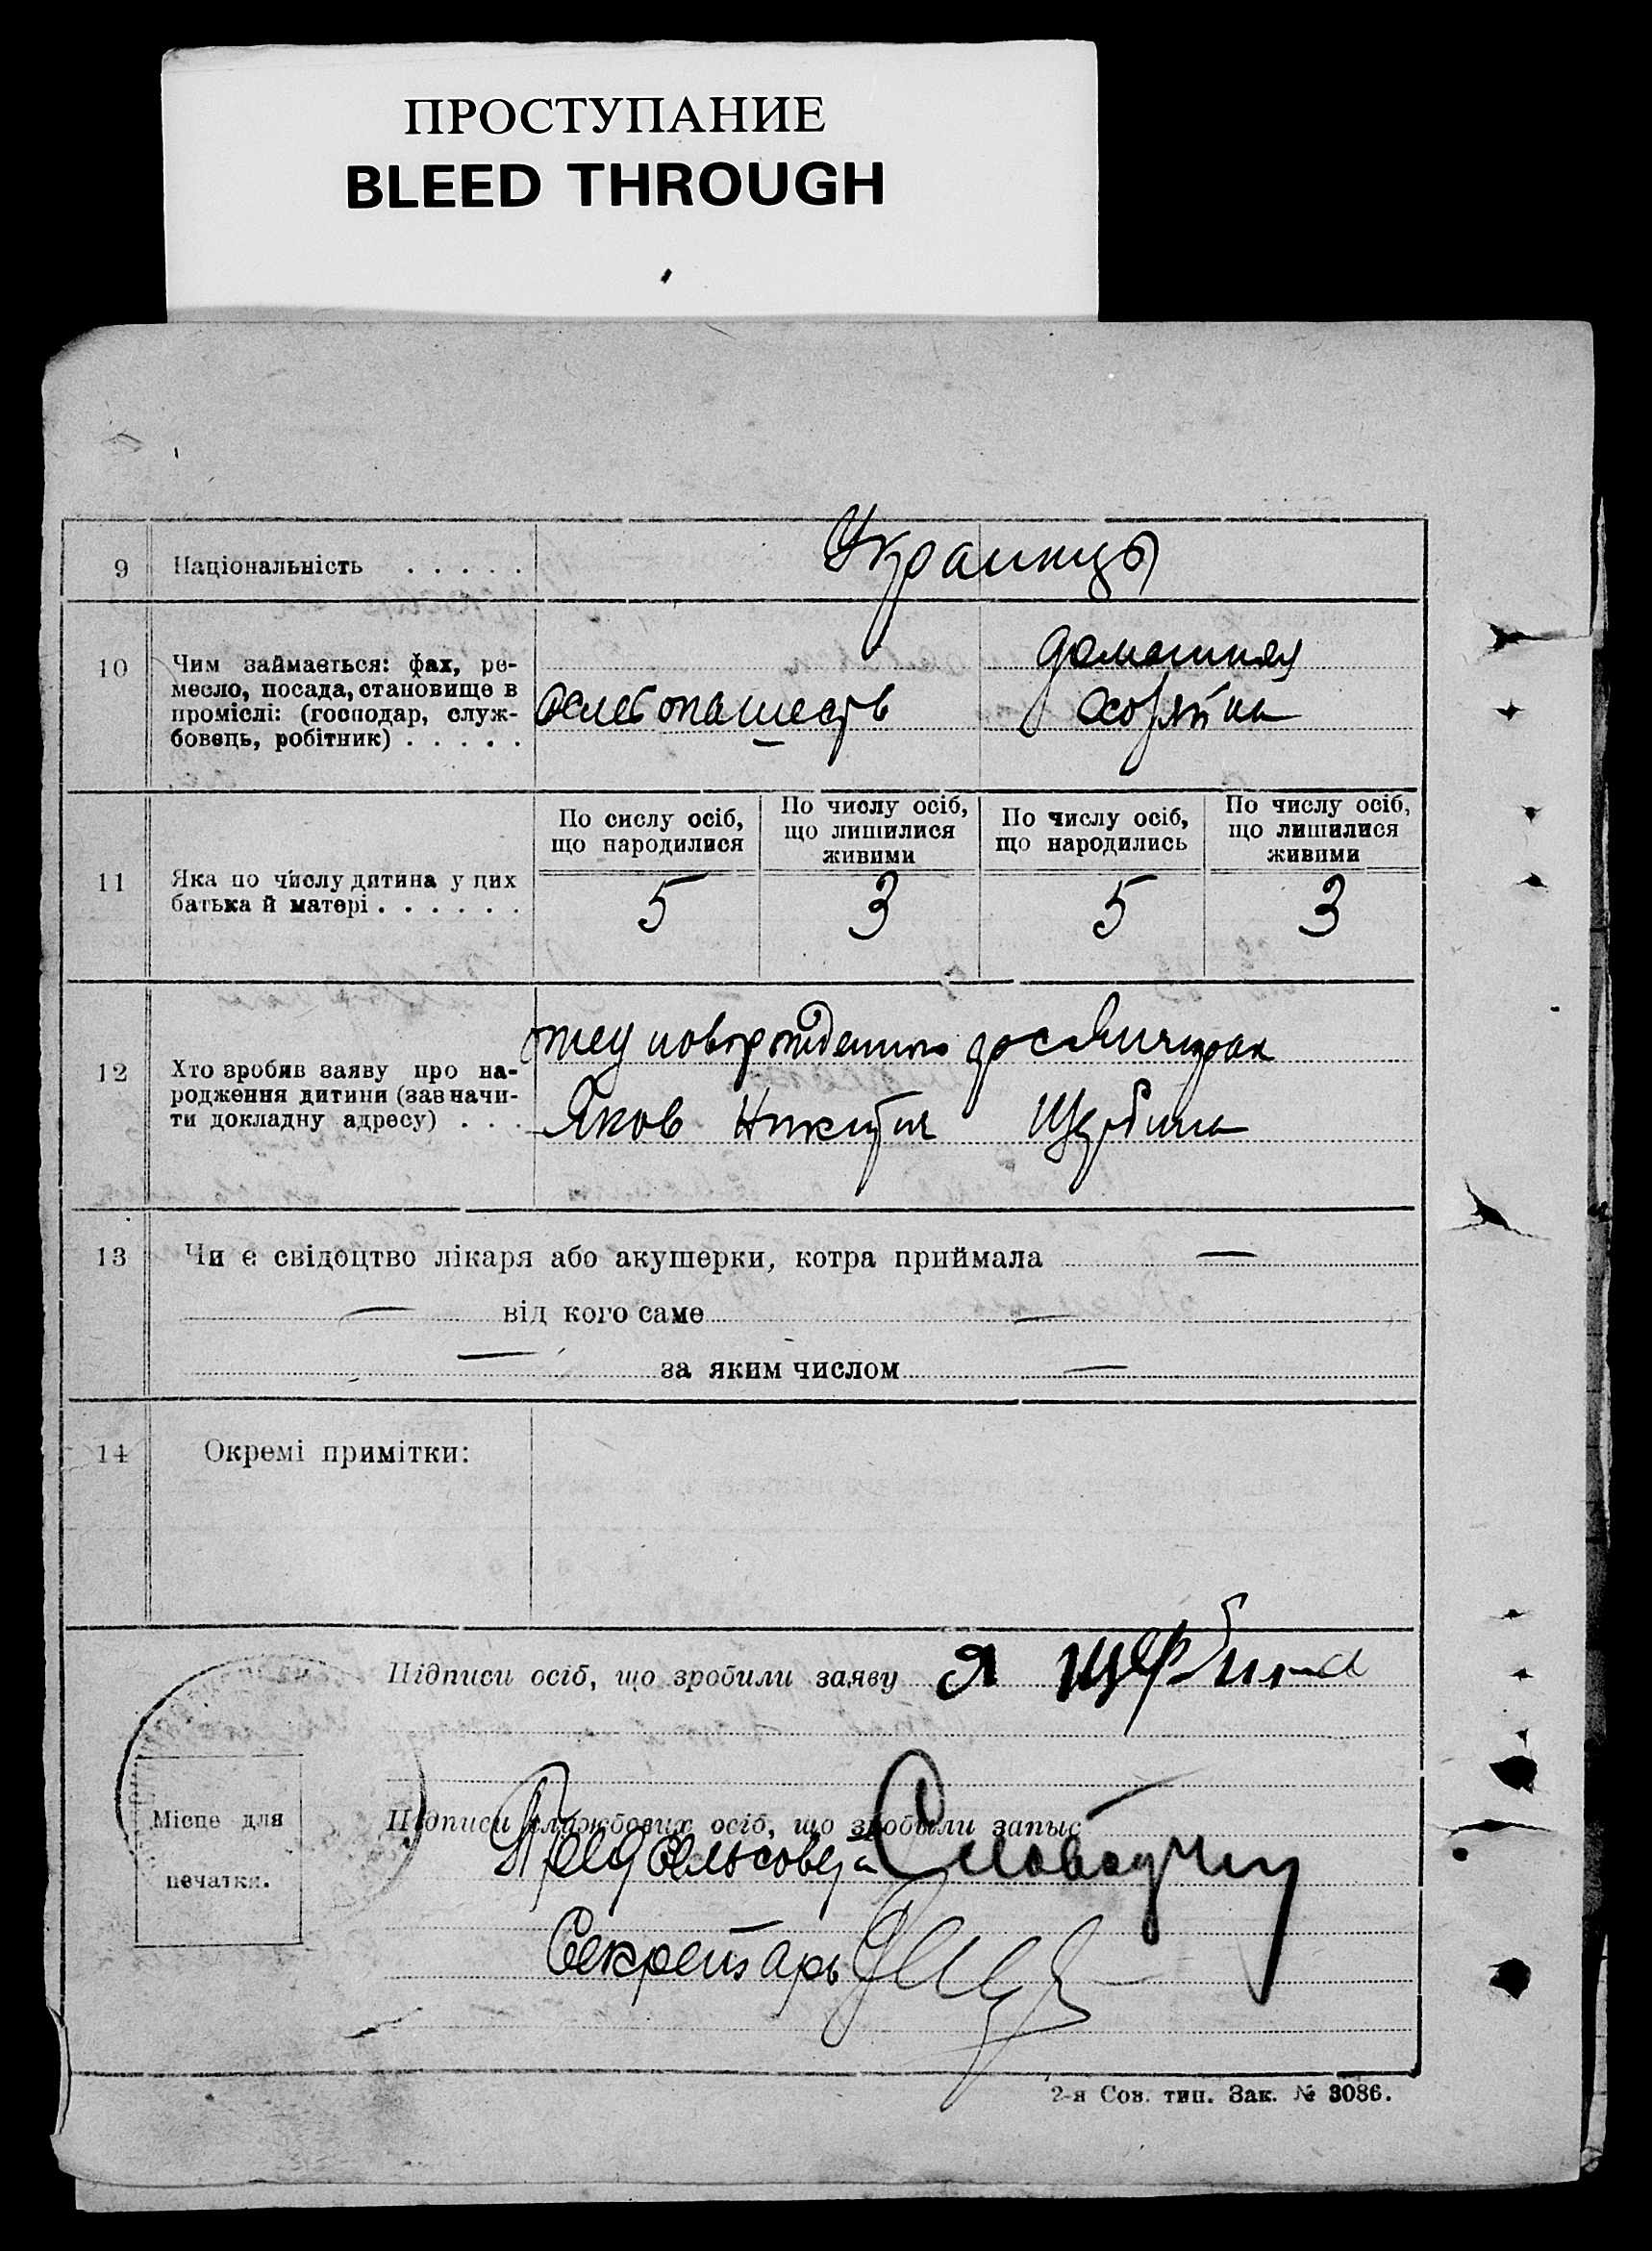 ПРОСТУПАНИЕ
BLEED THROUGH
9 Національність . . . . . Украинцы
10 Чим займається: фах, ре-
месло, посада, становище в
проміслі: (господар, служ-
бовець, робітник) . . . . .
хлебопашест
домашняя
хозяйка
11 Яка по числу дитина у цих
батька й матері . . . . . .
По сислу осіб,
що народилися
5
По числу осіб,
що лишилися
живими
3
По числу осіб,
що народились
5
По числу осіб,
що лишилися
живими
3
12 Хто зробив заяву про на-
родження дитини (зазначи-
ти докладну адресу) . . .
отец новорожденного
Яков Никитич Щербина
13 Чи є свідоцтво лікаря або акушерки, котра приймала —
— від кого саме —
— за яким числом —
14 Окремі примітки:
Підписи осіб, що зробили заяву Я Щербина
Місце для
печатки.
Підписи службових осіб, що зробыли запыс
Пред сельсовета
Секретарь
2-я Сов. тип. Зак. № 3086.